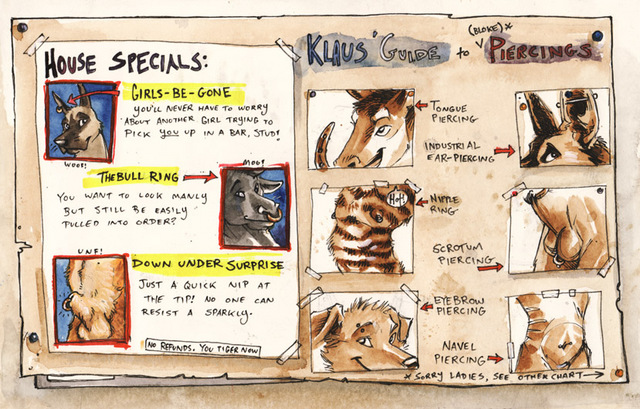 HOUSE SPECIALS:
GIRLS-BE-GONE
YOU'LL NEVER HAVE TO WORRY
ABOUT ANOTHER GIRL TRYING TO
PICK YOU UP IN A BAR, STUD!
WOOF!
MOO!
THE BULL RING
YOU WANT TO LOOK MANLY
BUT STILL BE EASILY
PULLED INTO ORDER?
UNF!
DOWN UNDER SURPRISE
JUST A QUICK NIP AT
THE TIP! NO ONE CAN
RESIST A SPARKLY.
NO REFUNDS. YOU TIGER NOW
KLAUS' GUIDE to (BLOKE)* PIERCINGS
TONGUE
PIERCING
INDUSTRIAL
EAR-PIERCING
HOT!
NIPPLE
RING
SCROTUM
PIERCING
EYEBROW
PIERCING
NAVEL
PIERCING
* SORRY LADIES, SEE OTHER CHART